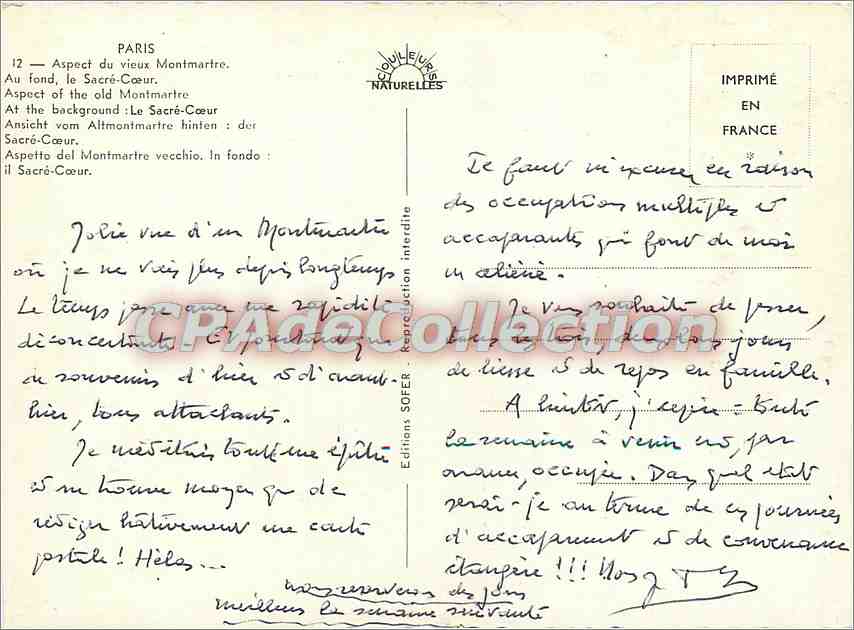 PARIS
12 — Aspect du vieux Montmartre.
Au fond, le Sacré-Cœur.
Aspect of the old Montmartre
At the background : Le Sacré-Cœur
Ansicht vom Altmontmartre hinten : der
Sacré-Cœur.
Aspetto del Montmartre vecchio. In fondo :
il Sacré-Cœur.
COULEURS
NATURELLES
IMPRIMÉ
EN
FRANCE
Jolie vue d'un Montmartre
où je ne vais plus depuis longtemps
Le temps passe avec une rapidité
déconcertante. Et pourtant que
de souvenirs d'hier et d'avant-
hier, tous attachants.
Je méditais toute une épître
et ne trouve moyen que de
rédiger hâtivement une carte
postale ! Hélas...
Editions SOFER - Reproduction interdite
Il faut m'excuser en raison
des occupations multiples et
accaparantes qui font de moi
un aliéné.
Je vous souhaite de passer,
tous les trois, de jours
de liesse et de repos en famille.
A bientôt, j'espère. Toute
la semaine à venir est, par
avance, occupée. Dans quel état
serai-je au terme de ces journées
d'accaparement et de convenance
étrangère !!!
nous reverrons des jours
meilleurs la semaine suivante
CPAdeCollection